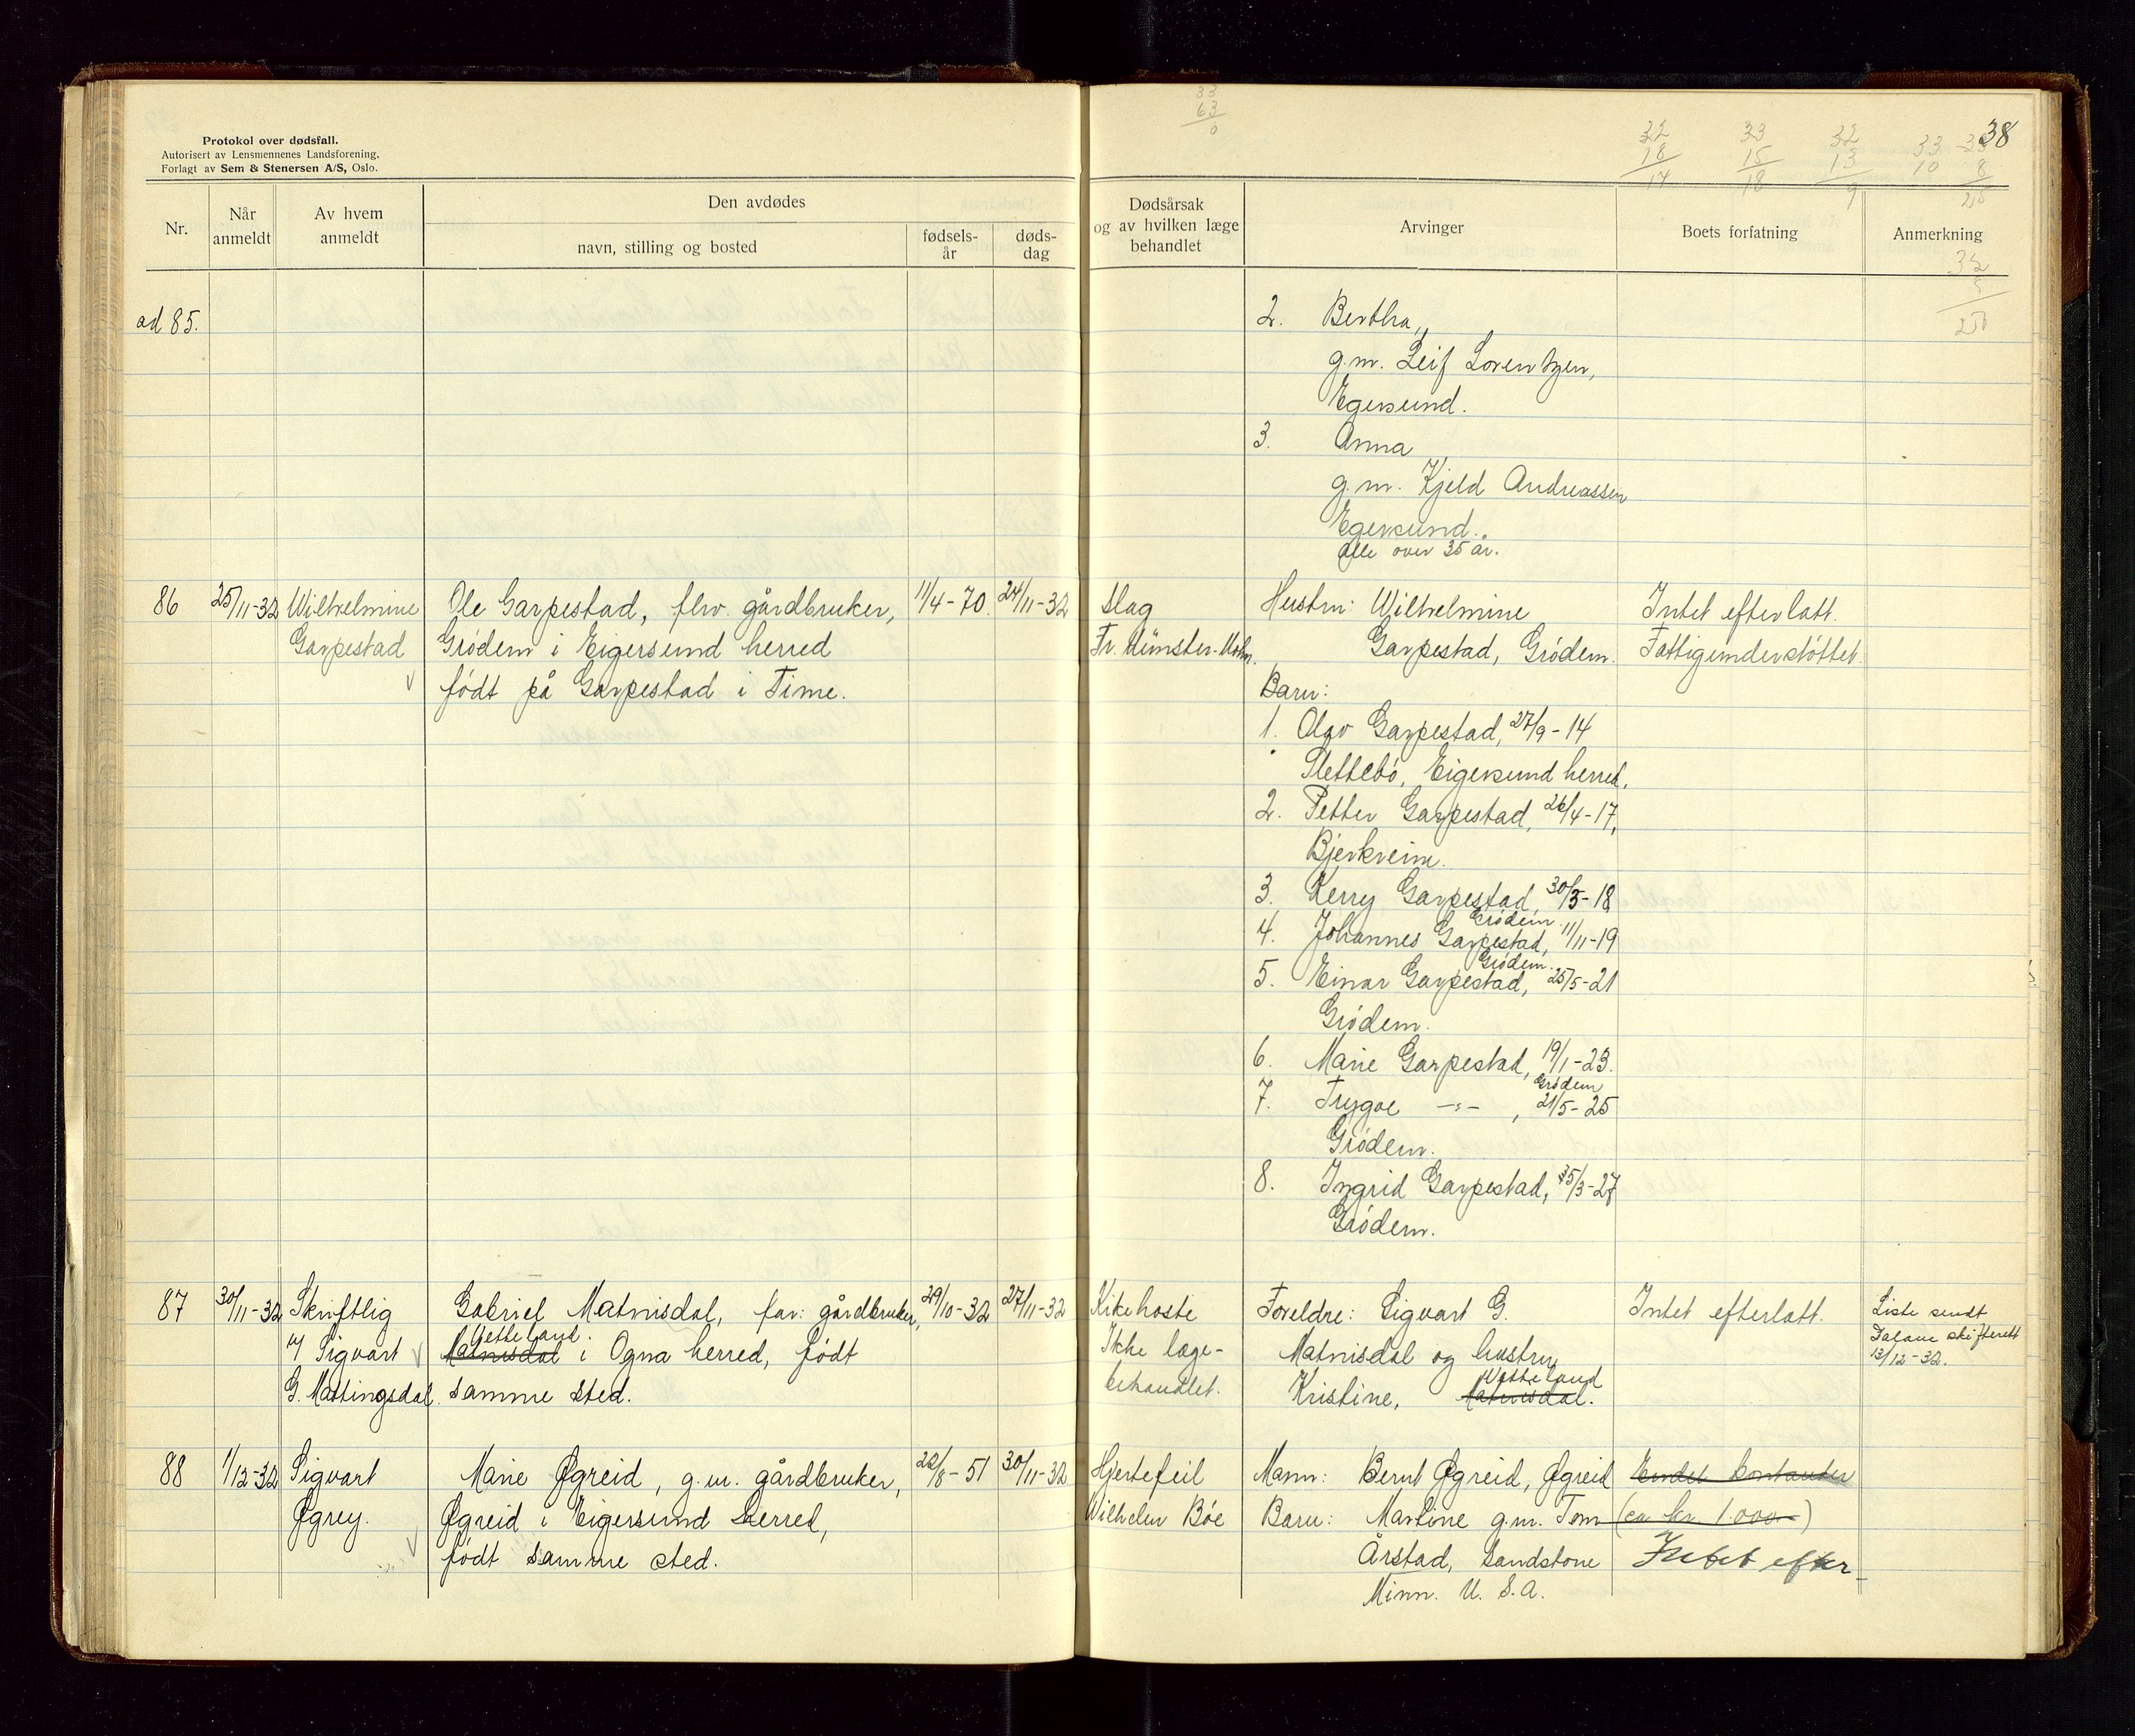 Protokol over dødsfall.
Autorisert av Lensmennenes Landsforening.
Forlagt av Sem & Stenersen A/S, Oslo.
38
33
63
0
32
18
14
33
15
18
32
13
9
33
10
8
25
Nr.
Når
anmeldt
Av hvem
anmeldt
Den avdødes
navn, stilling og bosted
fødsels-
år
døds-
dag
Dødsårsak
og av hvilken læge
behandlet
Arvinger
Boets forfatning
Anmerkning
ad 85.
2. Bertha,
g.m. Leif Lorentzen,
Egersund.
3. Anna
g.m. Kjeld Andreassen
Egersund.
Alle over 35 år.
86
25/11-32
Wilhelmine
Garpestad
Ole Garpestad, fhv. gårdbruker,
Grødem i Eigersund herred
født på Garpestad i Time.
11/4-70.
24/11-32
Slag
Fr. Münster-Mohn.
Hustru: Wilhelmine
Garpestad, Grødem.
Barn:
1. Olav Garpestad, 27/9-14
Slettebø, Eigersund herred.
2. Petter Garpestad, 26/4-17,
Bjerkreim.
3. Kerry Garpestad, 30/3-18
Grødem
4. Johannes Garpestad, 11/11-19
Grødem.
5. Einar Garpestad, 25/5-21
Grødem.
6. Marie Garpestad, 19/1-23.
Grødem
7. Trygve -"-, 21/5-25
Grødem.
8. Ingrid Garpestad, 35/3-27
Grødem.
Intet efterlatt.
Fattigunderstøttet.
87
30/11-32
Skriftlig
v/ Sigvart
G. Mattingsdal.
Gabriel Matnisdal, far: gårdbruker,
Vetteland.
Matnisdal i Ogna herred, født
samme sted.
29/10-32
27/11-32
Kikehoste
Ikke læge-
behandlet.
Foreldre: Sigvart G.
Matnisdal og hustru
Vetteland
Kristine, Matnisdal.
Intet efterlatt.
Liste sendt
Dalane skifterett
13/12-32.
88
1/12-32
Sigvart
Øgrey.
Marie Øgreid, g.m. gårdbruker,
Øgreid i Eigersund herred,
født samme sted.
22/8-51
30/11-32
Hjertefeil
Wilhelm Bøe
Mann: Bernt Øgreid, Øgreid
Barn: Martine g.m. Tom
Årstad, Sandstone
Minn. U. S. A.
Endel kontanter
(ca kr 1.000-)
Intet efter-